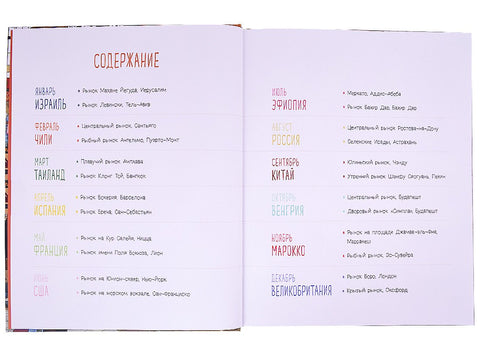 СОДЕРЖАНИЕ
ЯНВАРЬ
ИЗРАИЛЬ
Рынок Махане Йегуда, Иерусалим
Рынок Левински, Тель-Авив
ФЕВРАЛЬ
ЧИЛИ
Центральный рынок, Сантьяго
Рыбный рынок Ангельмо, Пуэрто-Монт
МАРТ
ТАИЛАНД
Плавучий рынок, Ампхава
Рынок Клонг Той, Бангкок
АПРЕЛЬ
ИСПАНИЯ
Рынок Бокерия, Барселона
Рынок Бреча, Сан-Себастьян
МАЙ
ФРАНЦИЯ
Рынок на Кур Салейя, Ницца
Рынок имени Поля Бокюза, Лион
ИЮНЬ
США
Рынок на Юнион-сквер, Нью-Йорк
Рынок на морском вокзале, Сан-Франциско
ИЮЛЬ
ЭФИОПИЯ
Меркато, Аддис-Абеба
Рынок Бахир Дар, Бахир Дар
АВГУСТ
РОССИЯ
Центральный рынок, Ростов-на-Дону
Селенские Исады, Астрахань
СЕНТЯБРЬ
КИТАЙ
Утренний рынок Пекин
ОКТЯБРЬ
ВЕНГРИЯ
Центральный рынок, Будапешт
Дворовый рынок «Симпла», Будапешт
НОЯБРЬ
МАРОККО
Рынок на площади Джамаа-эль-Фна,
Марракеш
Рыбный рынок, Эс-Сувейра
ДЕКАБРЬ
ВЕЛИКОБРИТАНИЯ
Рынок Боро, Лондон
Крытый рынок, Оксфорд